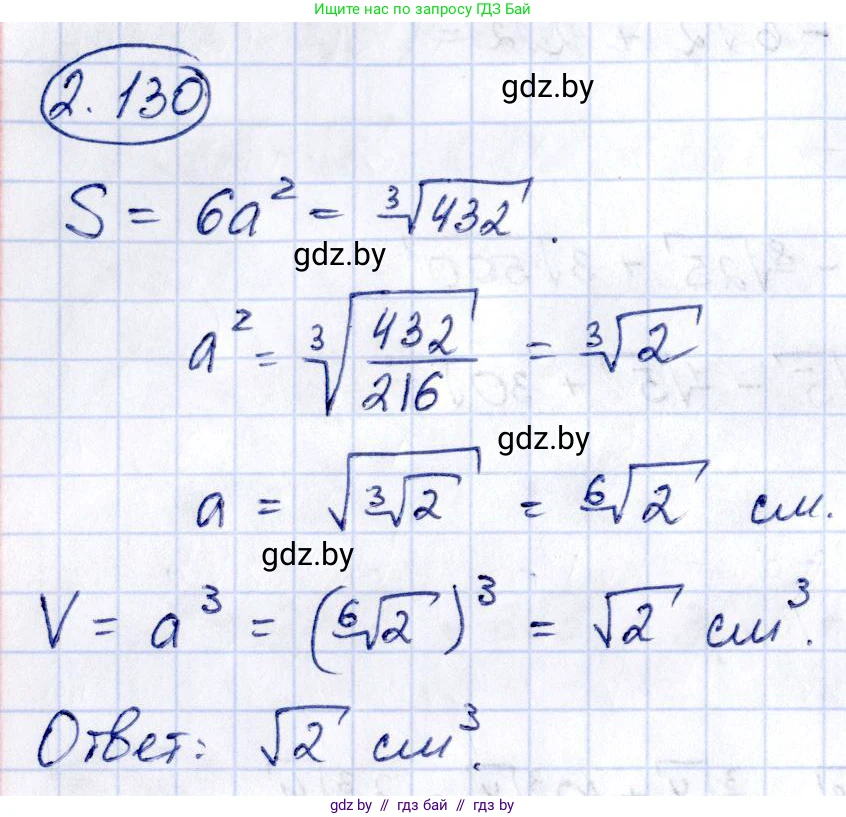 Ищите нас по запросу ГДЗ Бай
2.130
gdz.by
S = 6a² = ∛432.
gdz.by
a² = ∛(432/216) = ∛2
gdz.by
a = √(∛2) = ⁶√2 см.
gdz.by
V = a³ = (⁶√2)³ = √2 см³.
Ответ: √2 см³.
gdz.by // гдз бай // гдз by